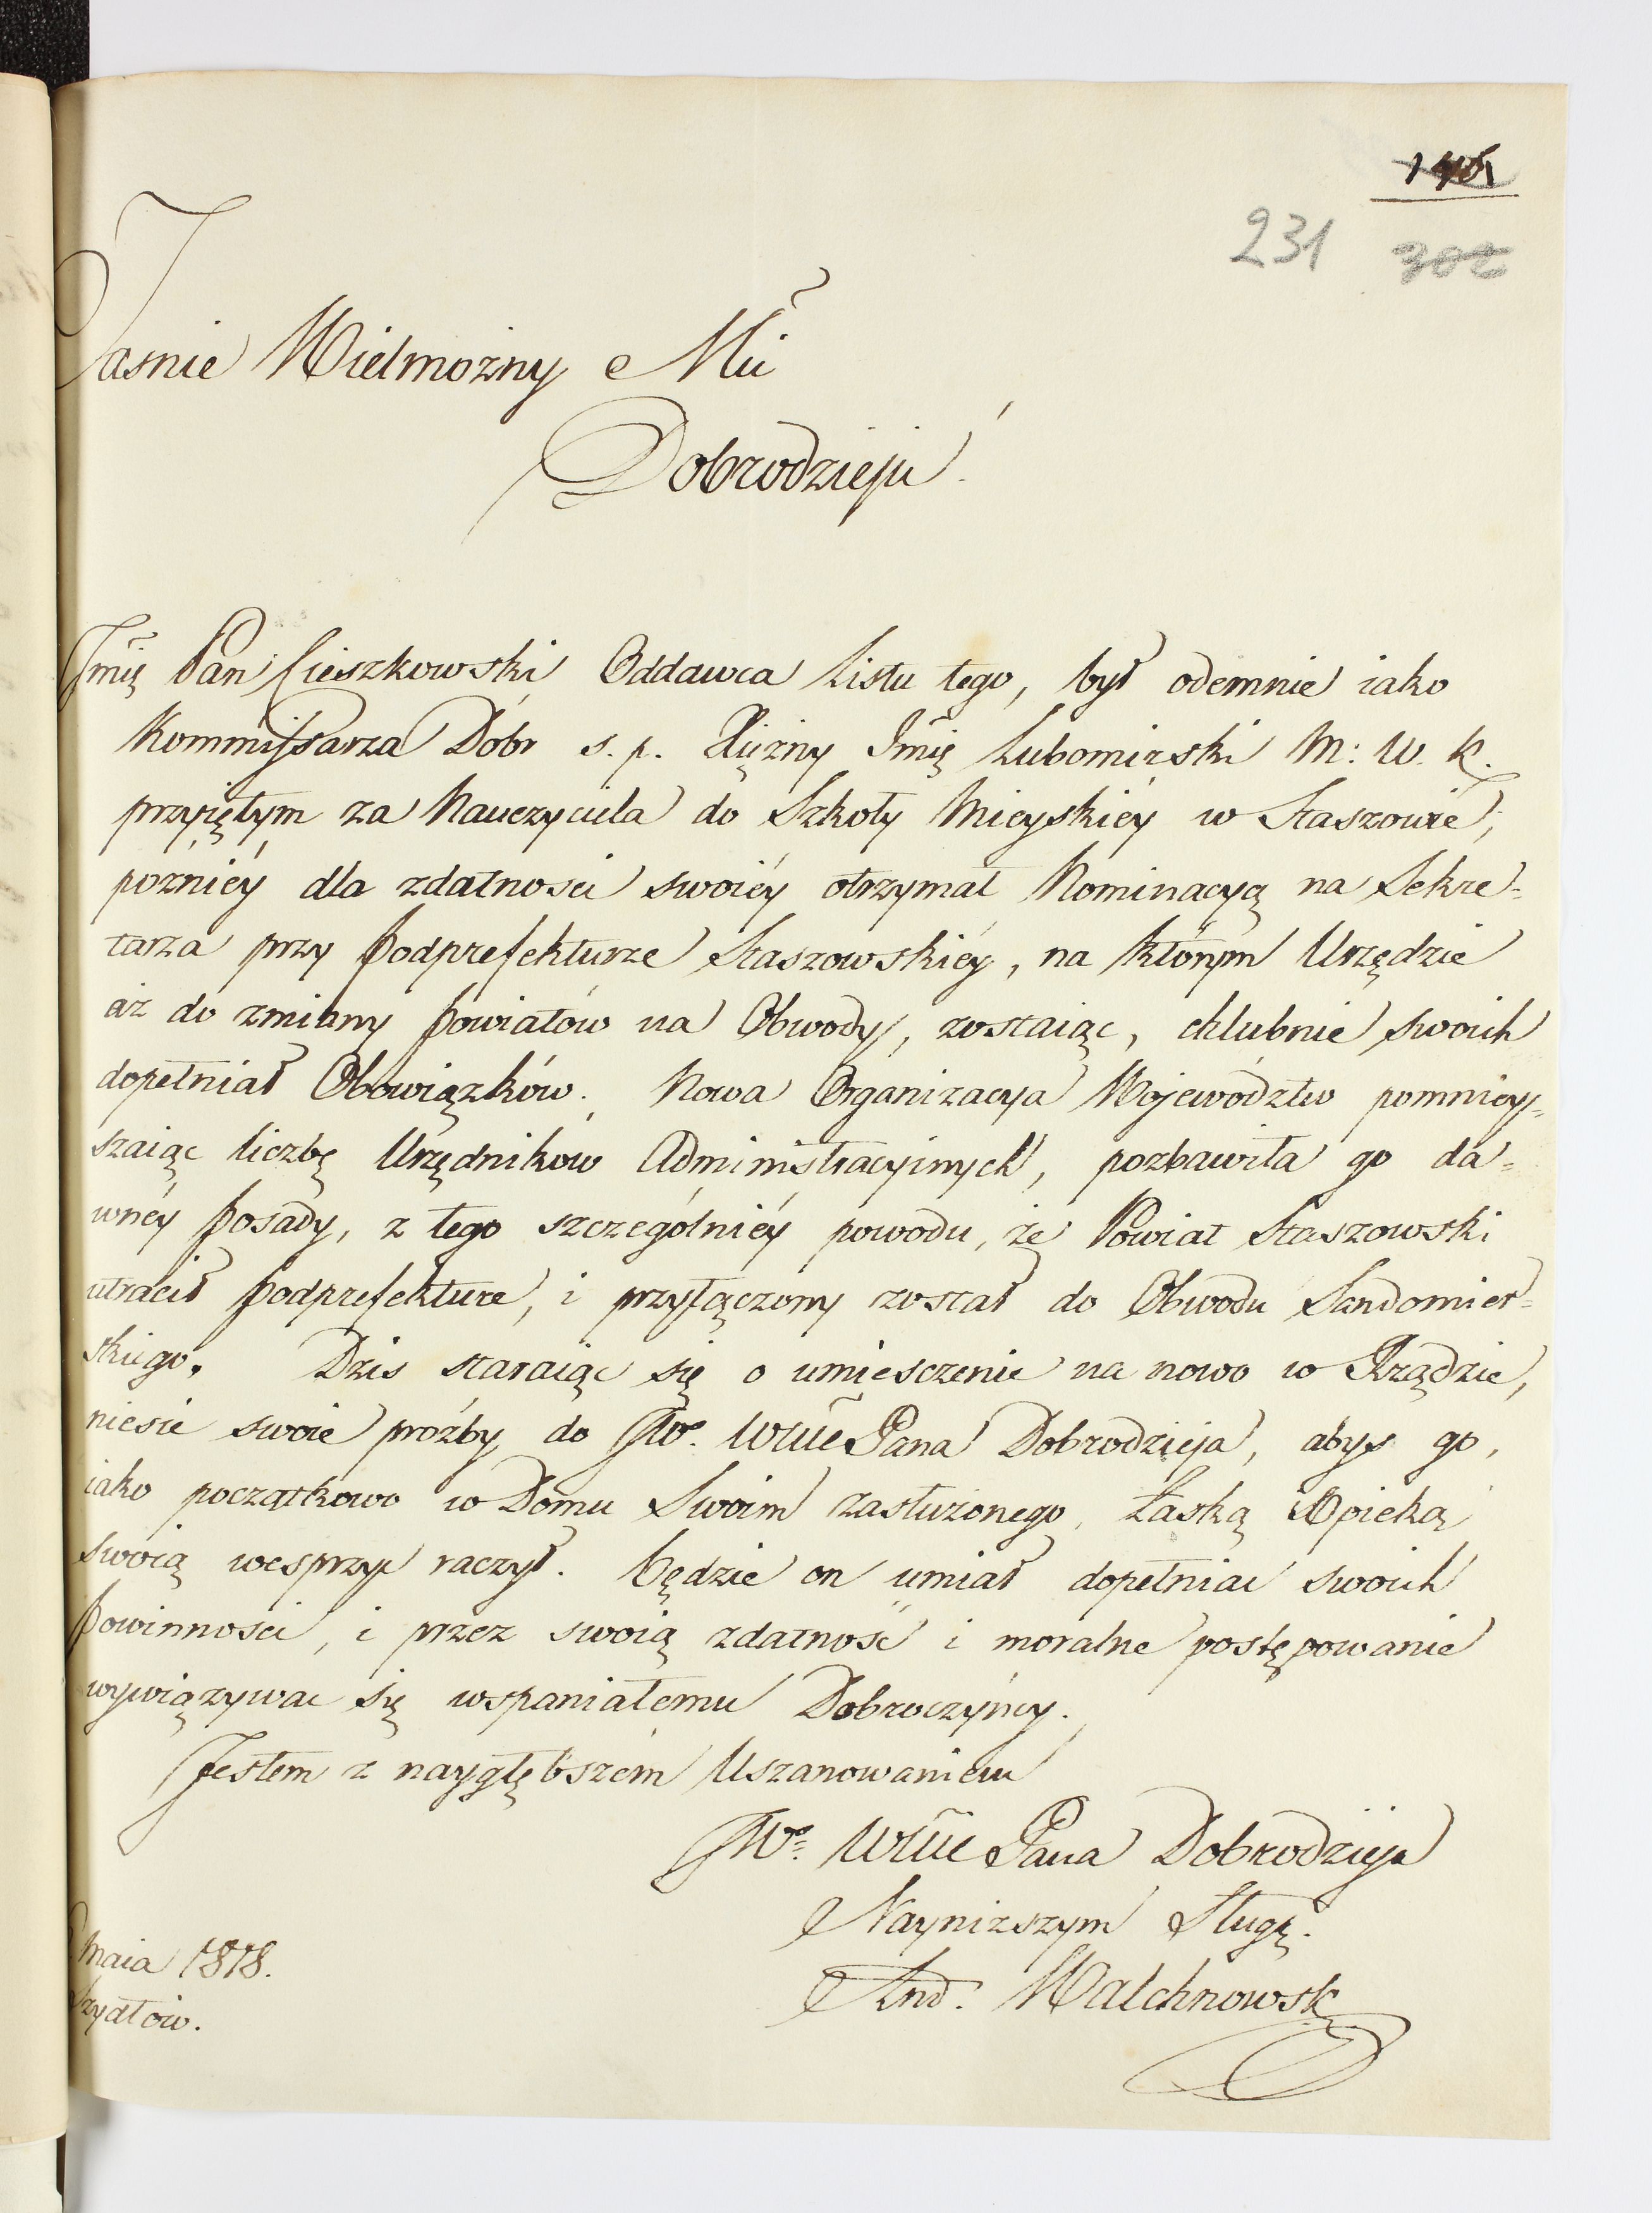 231
Jasnie Wielmożny Mci
Dobrodzieju
Jmię Pan Cieszkowski Oddawca Listu tego, był odemnie iako
Kommissarza Dóbr s. p. Xiężny Jmię Lubomirski M: W. K.
przyiętym za Nauczyciela do Szkoły Mieyskiéy w Staszowie,
poźniéy dla zdatnosci swoiéy otrzymał Nominacyą na Sekre=
tarza przy Podprefekturze Staszowskiéy, na którym Urzędzie
aż do zmiany Powiatów na Obwody, zostaiąc, chlubnie swoich
dopełniał Obowiązków. Nowa Organizacya Województw pomniey=
szaiąc liczbę Urzędników Administracyinych, pozbawiła go da=
wnéy Posady, z tego szczególniéy powodu, że Powiat Staszowski
utracił Podprefekturę, i przyłączony został do Obwodu Sandomier=
skiego. Dzis staraiąc się o umiesczenie na nowo w Rządzie,
niesie swoie proźby do JW. WMć Pana Dobrodzieja, abys go,
iako początkowo w Domu Swoim zasłużonego, Łaską i Opieką
swoią wesprzyć raczył. Będzie on umiał dopełniac swoich
Powinnosci, i przez swoią zdatność i moralne postępowanie
wywiązywac się wspaniałemu Dobroczyńcy.
Jestem z naygłębszém Uszanowaniem
JW. WMć Pana Dobrodzieja
Nayniższym Sługą.
And. Walchnowski
Maia 1818.
Szydłów.